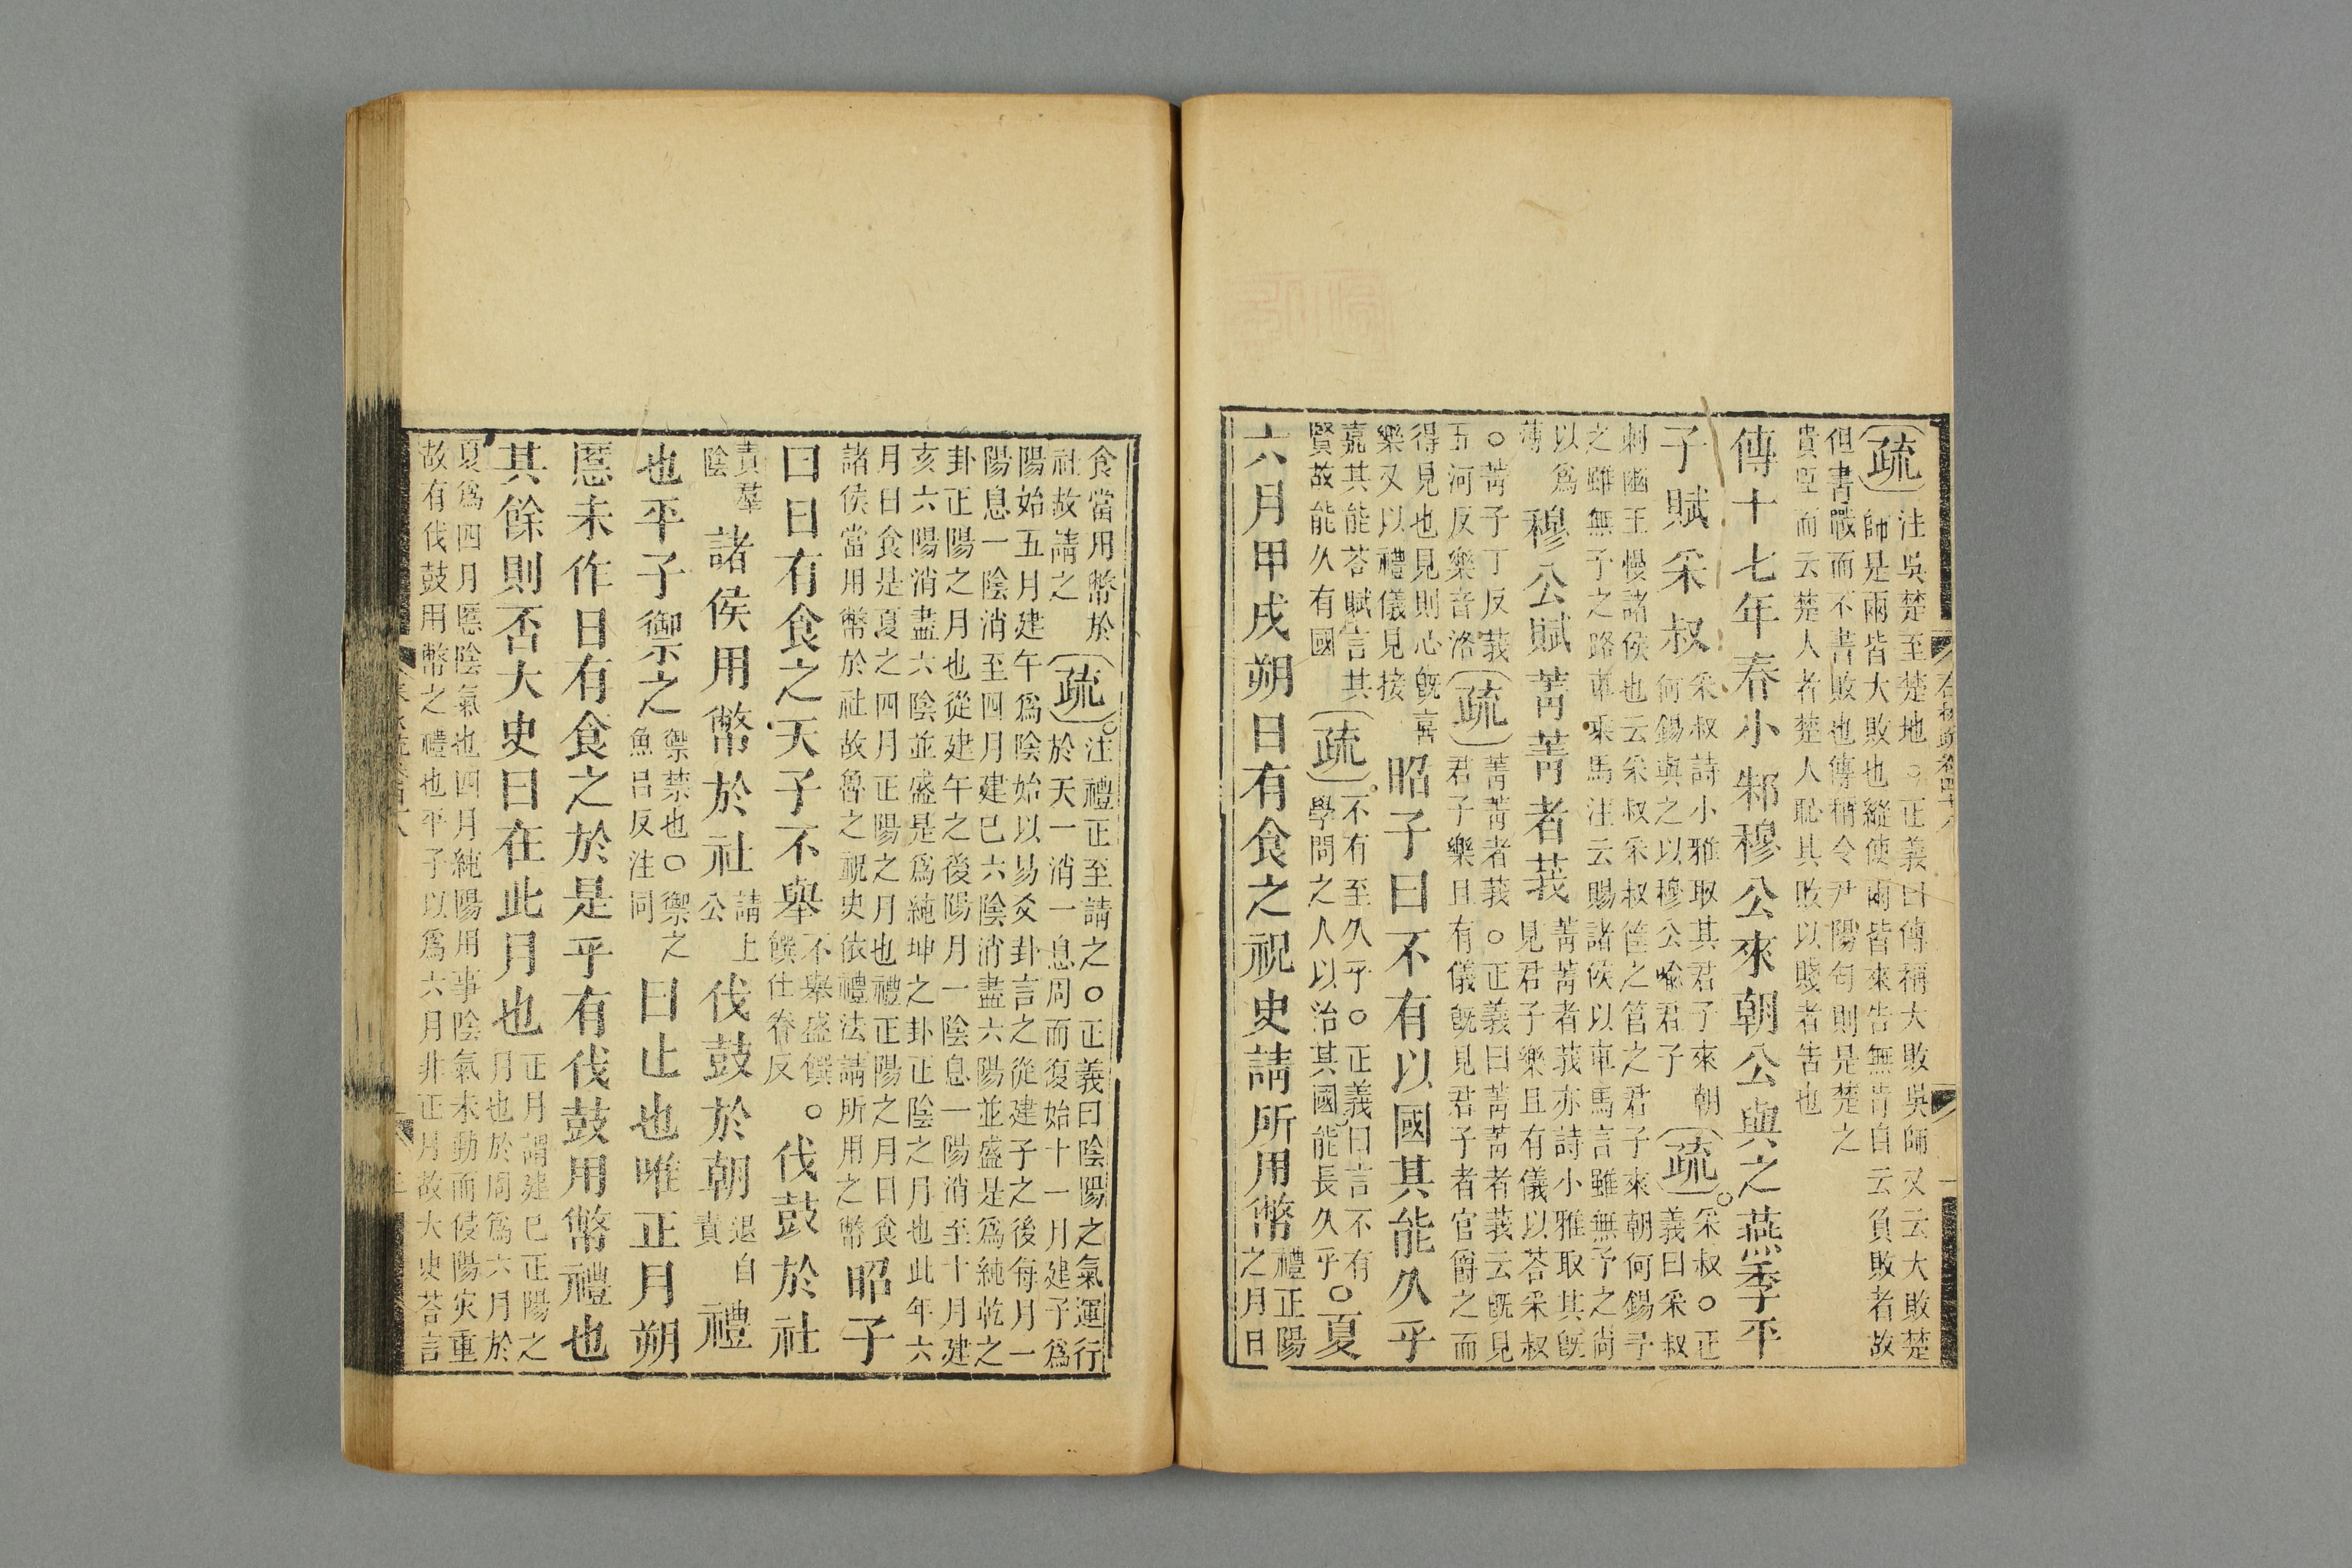 疏 注吳楚至楚地○正義曰傳稱大敗吳師又云大敗楚
師是兩皆大敗也縱使兩皆來告無肯自云負敗者故
但書戰而不書敗也傳稱令尹陽匄則是楚之
貴臣而云楚人者楚人恥其敗以賤者告也
傳十七年春小邾穆公來朝公與之燕季平
子賦采叔
采叔詩小雅取其君子來朝
何錫與之以穆公喻君子
疏 采叔○正
義曰采叔
刺幽王慢諸侯也云采叔采叔筐之筥之君子來朝何錫予
之雖無予之路車乘馬注云賜諸侯以車馬言雖無予之尚
以爲
薄
穆公賦菁菁者莪
菁菁者莪亦詩小雅取其旣
見君子樂且有儀以荅采叔
○菁子丁反莪
五河反樂音洛
疏 菁菁者莪○正義曰菁菁者莪云旣見
君子樂且有儀旣見君子者官爵之而
得見也見則心旣喜
樂又以禮儀見接
昭子曰不有以國其能久乎
嘉其能荅賦言其
賢故能久有國
疏 不有至久乎○正義曰言不有
學問之人以治其國能長久乎
○夏
六月甲戌朔日有食之祝史請所用幣
禮正陽
之月日
食當用幣於
社故請之
疏 注禮正至請之○正義曰陰陽之氣運行
於天一消一息周而復始十一月建子爲
陽始五月建午爲陰始以易爻卦言之從建子之後每月一
陽息一陰消至四月建巳六陰消盡六陽並盛是爲純乾之
卦正陽之月也從建午之後陽月一陰息一陽消至十月建
亥六陽消盡六陰並盛是爲純坤之卦正陰之月也此年六
月日食是夏之四月正陽之月也禮正陽之月日食
諸侯當用幣於社故魯之祝史依禮法請所用之幣
昭子
曰日有食之天子不舉
不舉盛饌
饌仕眷反
○伐鼓於社
責羣
陰
諸侯用幣於社
請上
公
伐鼓於朝
退自
責
禮
也平子禦之
禦禁也○禦之
魚呂反注同
曰止也唯正月朔
慝未作日有食之於是乎有伐鼓用幣禮也
其餘則否大史曰在此月也
正月謂建巳正陽之
月也於周爲六月於
夏爲四月慝陰氣也四月純陽用事陰氣未動而侵陽灾重
故有伐鼓用幣之禮也平子以爲六月非正月故大史荅言